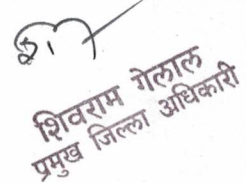 शिवराम गेलाल
प्रमुख जिल्ला अधिकारी